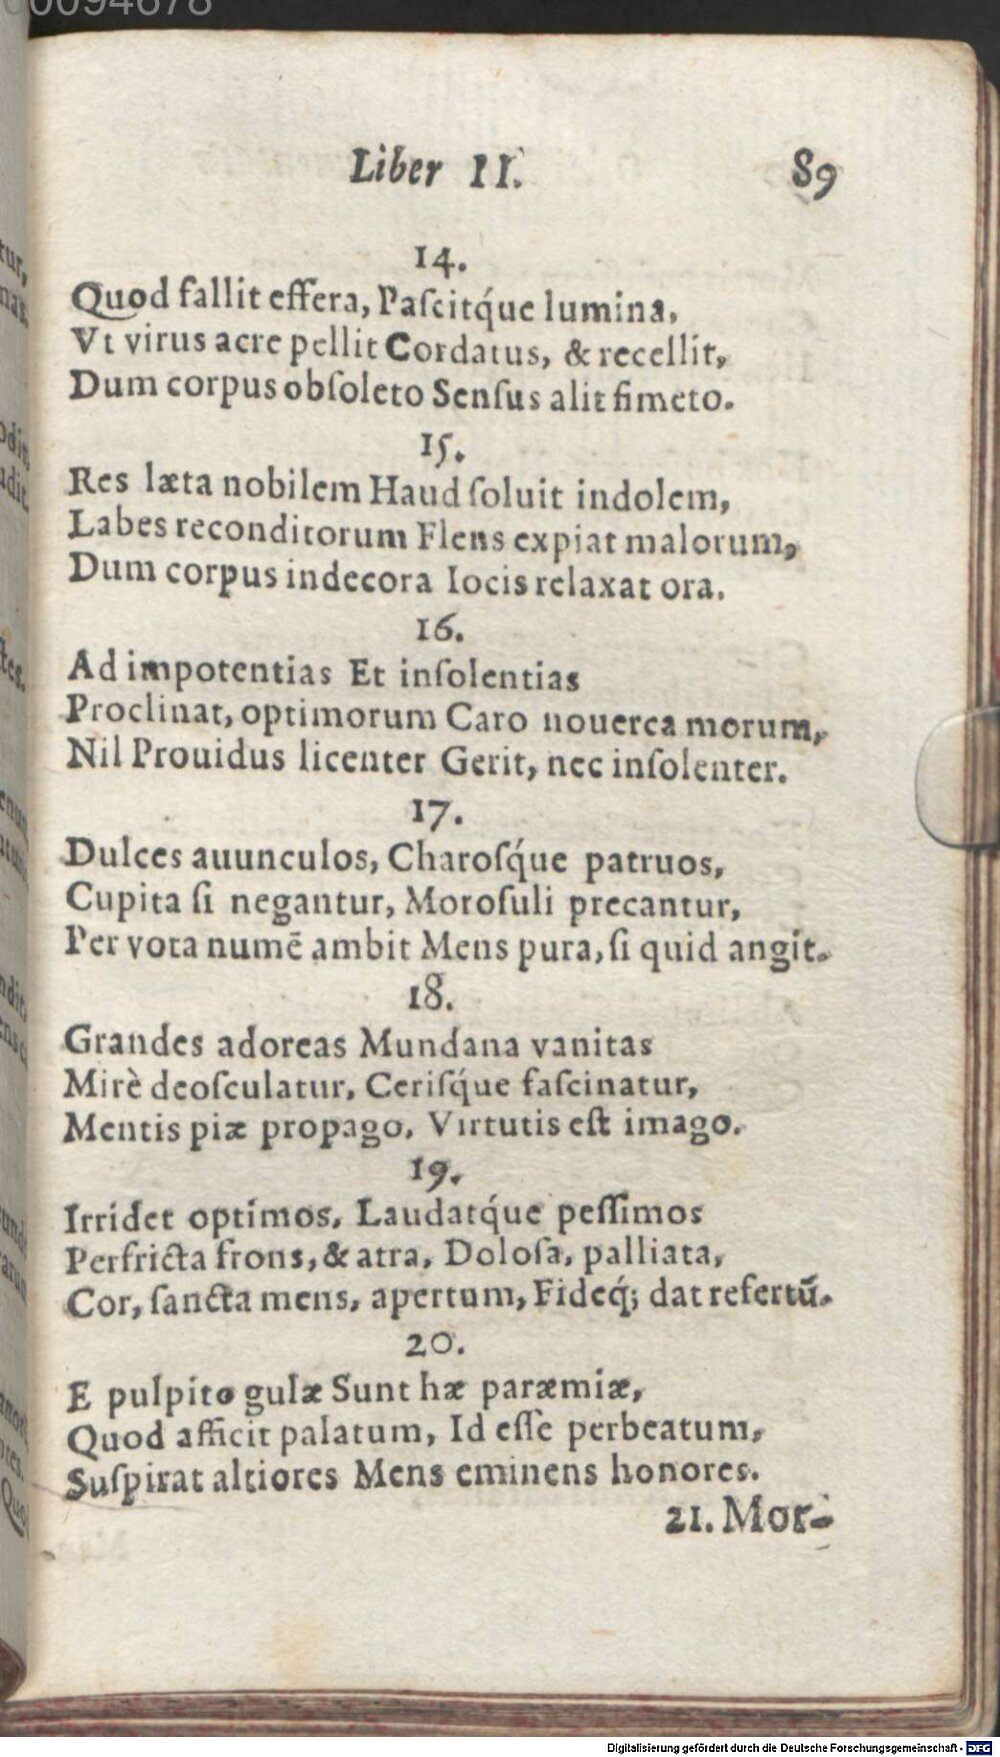 00094678
Liber II. 89
14.
Quod fallit effera, Paſcitq́ue lumina,
Vt virus acre pellit Cordatus, & recellit,
Dum corpus obſoleto Senſus alit fimeto.
15.
Res læta nobilem Haud ſoluit indolem,
Labes reconditorum Flens expiat malorum,
Dum corpus indecora Iocis relaxat ora.
16.
Ad impotentias Et inſolentias
Proclinat, optimorum Caro nouerca morum,
Nil Prouidus licenter Gerit, nec inſolenter.
17.
Dulces auunculos, Charoſq́ue patruos,
Cupita ſi negantur, Moroſuli precantur,
Per vota numē ambit Mens pura, ſi quid angit.
18.
Grandes adoreas Mundana vanitas
Mirè deoſculatur, Ceriſq́ue faſcinatur,
Mentis piæ propago, Virtutis eſt imago.
19.
Irridet optimos, Laudatq́ue peſſimos
Perfricta frons, & atra, Doloſa, palliata,
Cor, ſancta mens, apertum, Fideq́; dat refertū.
20.
E pulpito gulæ Sunt hæ paræmiæ,
Quod afficit palatum, Id eſſe perbeatum,
Suſpirat altiores Mens eminens honores.
21. Mor-
Digitalisierung gefördert durch die Deutsche Forschungsgemeinschaft - DFG